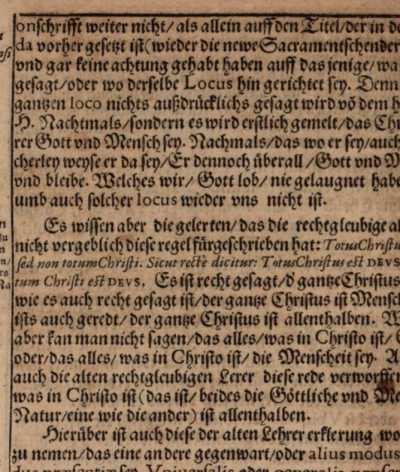 onschrifft weiter nicht/ als allein auff den Titel/ der in de
da vorher gesetzt ist (wieder die newe Sacramentschender
vnd gar keine achtung gehabt haben auff das jenige/ wa
gesagt/ oder wo derselbe Locus hin gerichtet sey. Denn
gantzen loco nichts außdrücklichs gesagt wird võ dem h
H. Nachtmals/ sondern es wird erstlich gemelt/ das Chr
rer Gott vnd Mensch sey. Nachmals/ das wo er sey/ auch
cherley weyse er da sey/ Er dennoch überall/ Gott vnd M
vnd bleibe. Welches wir/ Gott lob/ nie gelaugnet habe
umb auch solcher locus wieder vns nicht ist.
Es wissen aber die gelerten/ das die rechtgleubige al
nicht vergeblich diese regel fürgeschrieben hat: Totus Christu
sed non totum Christi. Sicut recte dicitur: Totus Christus est DEVS,
tum Christi est DEVS. Es ist recht gesagt/ d' gantze Christus
wie es auch recht gesagt ist/ der gantze Christus ist Mensch
ists auch geredt/ der gantze Christus ist allenthalben. W
aber kan man nicht sagen/ das alles/ was in Christo ist/ G
oder/ das alles/ was in Christo ist/ die Menscheit sey. A
auch die alten rechtgleubigen Lerer diese rede verworffen
was in Christo ist (das ist/ beides die Göttliche vnd Me
Natur/ eine wie die ander) ist allenthalben.
Hierüber ist auch diese der alten Lehrer erklerung wo
zu nemen/ das eine andere gegenwart/ oder alius modus